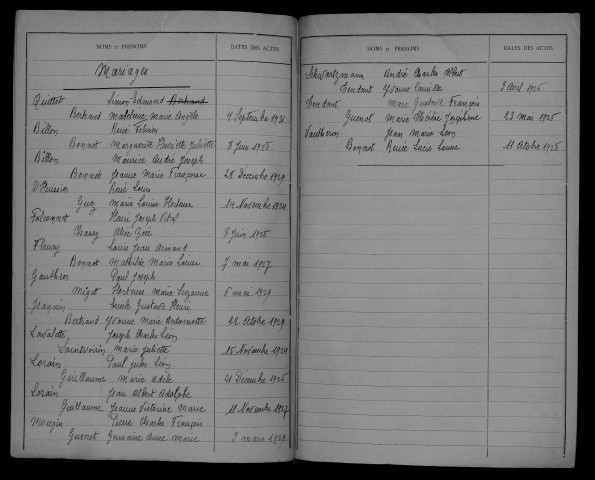 NOMS ET PRÉNOMS DATES DES ACTES
Mariages
Quittet Simon Edmond Bertrand
Bertrand Madeleine Marie Angèle 4 Septembre 1921
Billon René
Bonnot Marguerite Henriette Juliette 8 Juin 1928
Billon Maurice André Joseph
Bonnot Jeanne Marie Françoise 28 Décembre 1929
René Louis
Guoz Marie Louise Hortense 14 Novembre 1924
Falconnet Henri Joseph Vital
Chasey Alice Zoé 5 Juin 1926
Fleury Louis Jean Armand
Bonnot Mathilde Marie Louise 7 mai 1927
Gauthier Paul Joseph
Miget Hortense Marie Suzanne 6 mai 1929
Jeannin Emile Gustave Henri
Bertrand Yvonne Marie Antoinette 22 Octobre 1929
Lavalette Joseph Charles Léon
Saintvoirin Marie Juliette 15 Novembre 1924
Lorain Paul Jules Léon
Guillaume Marie Adèle 21 Décembre 1926
Lorain Jean Albert Adolphe
Guillaume Jeanne Victorine Marie 11 Novembre 1927
Mougin Pierre Charles François
Guenot Germaine Anne Marie 3 mars 1929
NOMS ET PRÉNOMS DATES DES ACTES
Schwartzmann André Charles Albert
Tendant Yvonne Camille 3 Avril 1926
Tendant Marc Gustave François
Guenot Marie Thérèse Joséphine 23 Mai 1925
Vautherin Jean Marie Léon
Bonnot Renée Lucie Louise 11 Octobre 1928